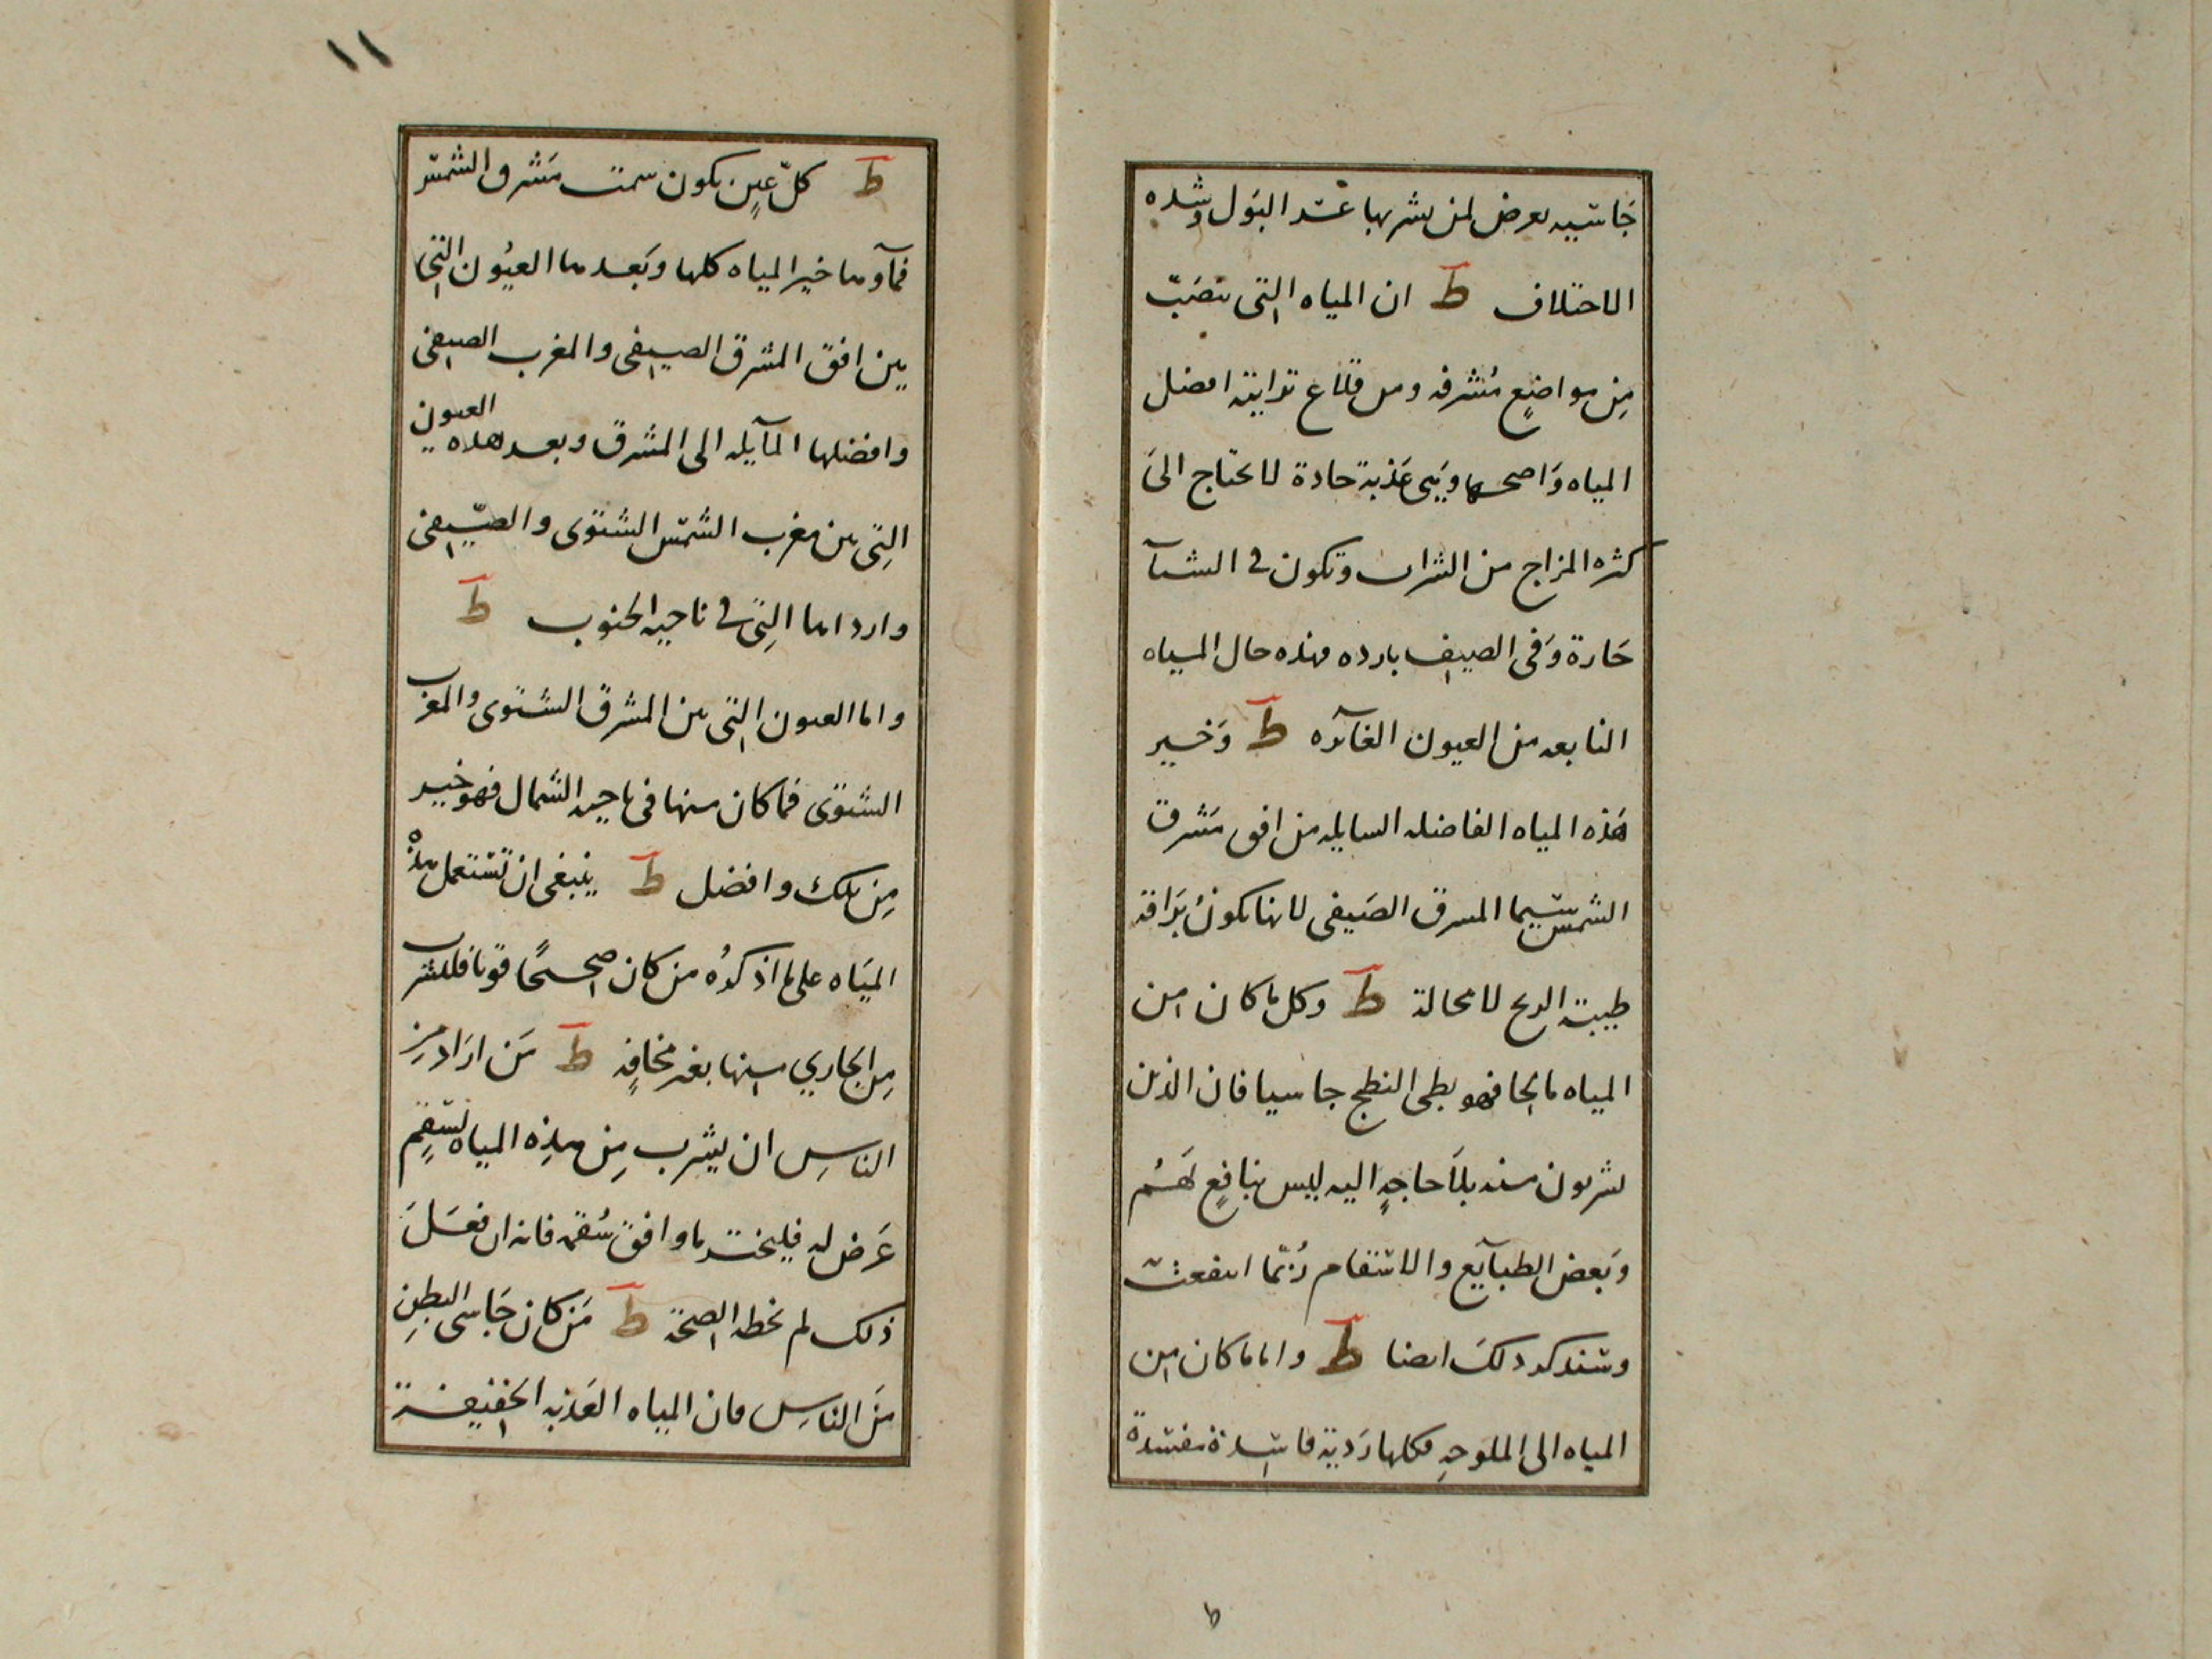 جاسيه يعرض لمن يشربها عسر البول وشده
الاختلاف ط ان المياه التي تنصبّ
مِن مواضعٍ مُشرفه ومن قلاع ترابيّة افضل
المياه وَاصحها وَهي عَذبة حادة لا تحتاج الىَ
كثره المزاج من الشراب وتكون في الشتآ
حَارة وَفي الصيف بارده فهذه حال المياه
النابعه من العيون الغآئره ط وَخير
هَذه المياه الفاضله السايله من افق مَشرق
الشمس سيّما المشرق الصَيفي لانها تكونُ بَرَاقة
طيبة الريح لا محالة ط وكل ما كان من
المياه مالحا فهو بطى النطج جاسيا فان الذين
يشربون منه بلاَ حاجةٍ اليه ليس بنافعٍ لهَم
وَبعض الطبآيع والاسقام رُبّما انتفعت
وسنذكر ذلكَ ايضا ط واما ما كان من
المياه الى الملوحهِ فكلها رَدية فاسدة مفسدة
١١
ط كلّ عينٍ يكون سمت مَشرق الشمس
فمآوها خير المياه كلها وبَعدها العيُون التي
بين افق المشرق الصيفي والمغرب الصيفي
وافضلها المآيله الى المشرق وبعد هذه العيون
التِي بين مغرب الشمّس الشتوى والصّيفي
وارداها التِي في ناحيه الجنوب ط
واما العيون التي بين المشرق الشتوى والمغرب
الشتوى فما كان منها في ناحيه الشمال فهو خير
مِن تلك وافضل ط ينبغي ان تستعمل هذه
الميَاه على ما اذكرُه من كان صحيحًا قويا فليشرب
مِن الجاري منها بغير مخافةٍ ط مَن ارَاد مِن
الناسِ ان يشرب مِن هذِه المياه لسَقمٍ
عَرض له فليختر ما وافق سُقمه فانه ان فعَل
ذلك لم تخطه الصحّة ط مَن كان جَاسى البطنِ
مَن الناسِ فان المياه العَذبه الخفيفة
ط